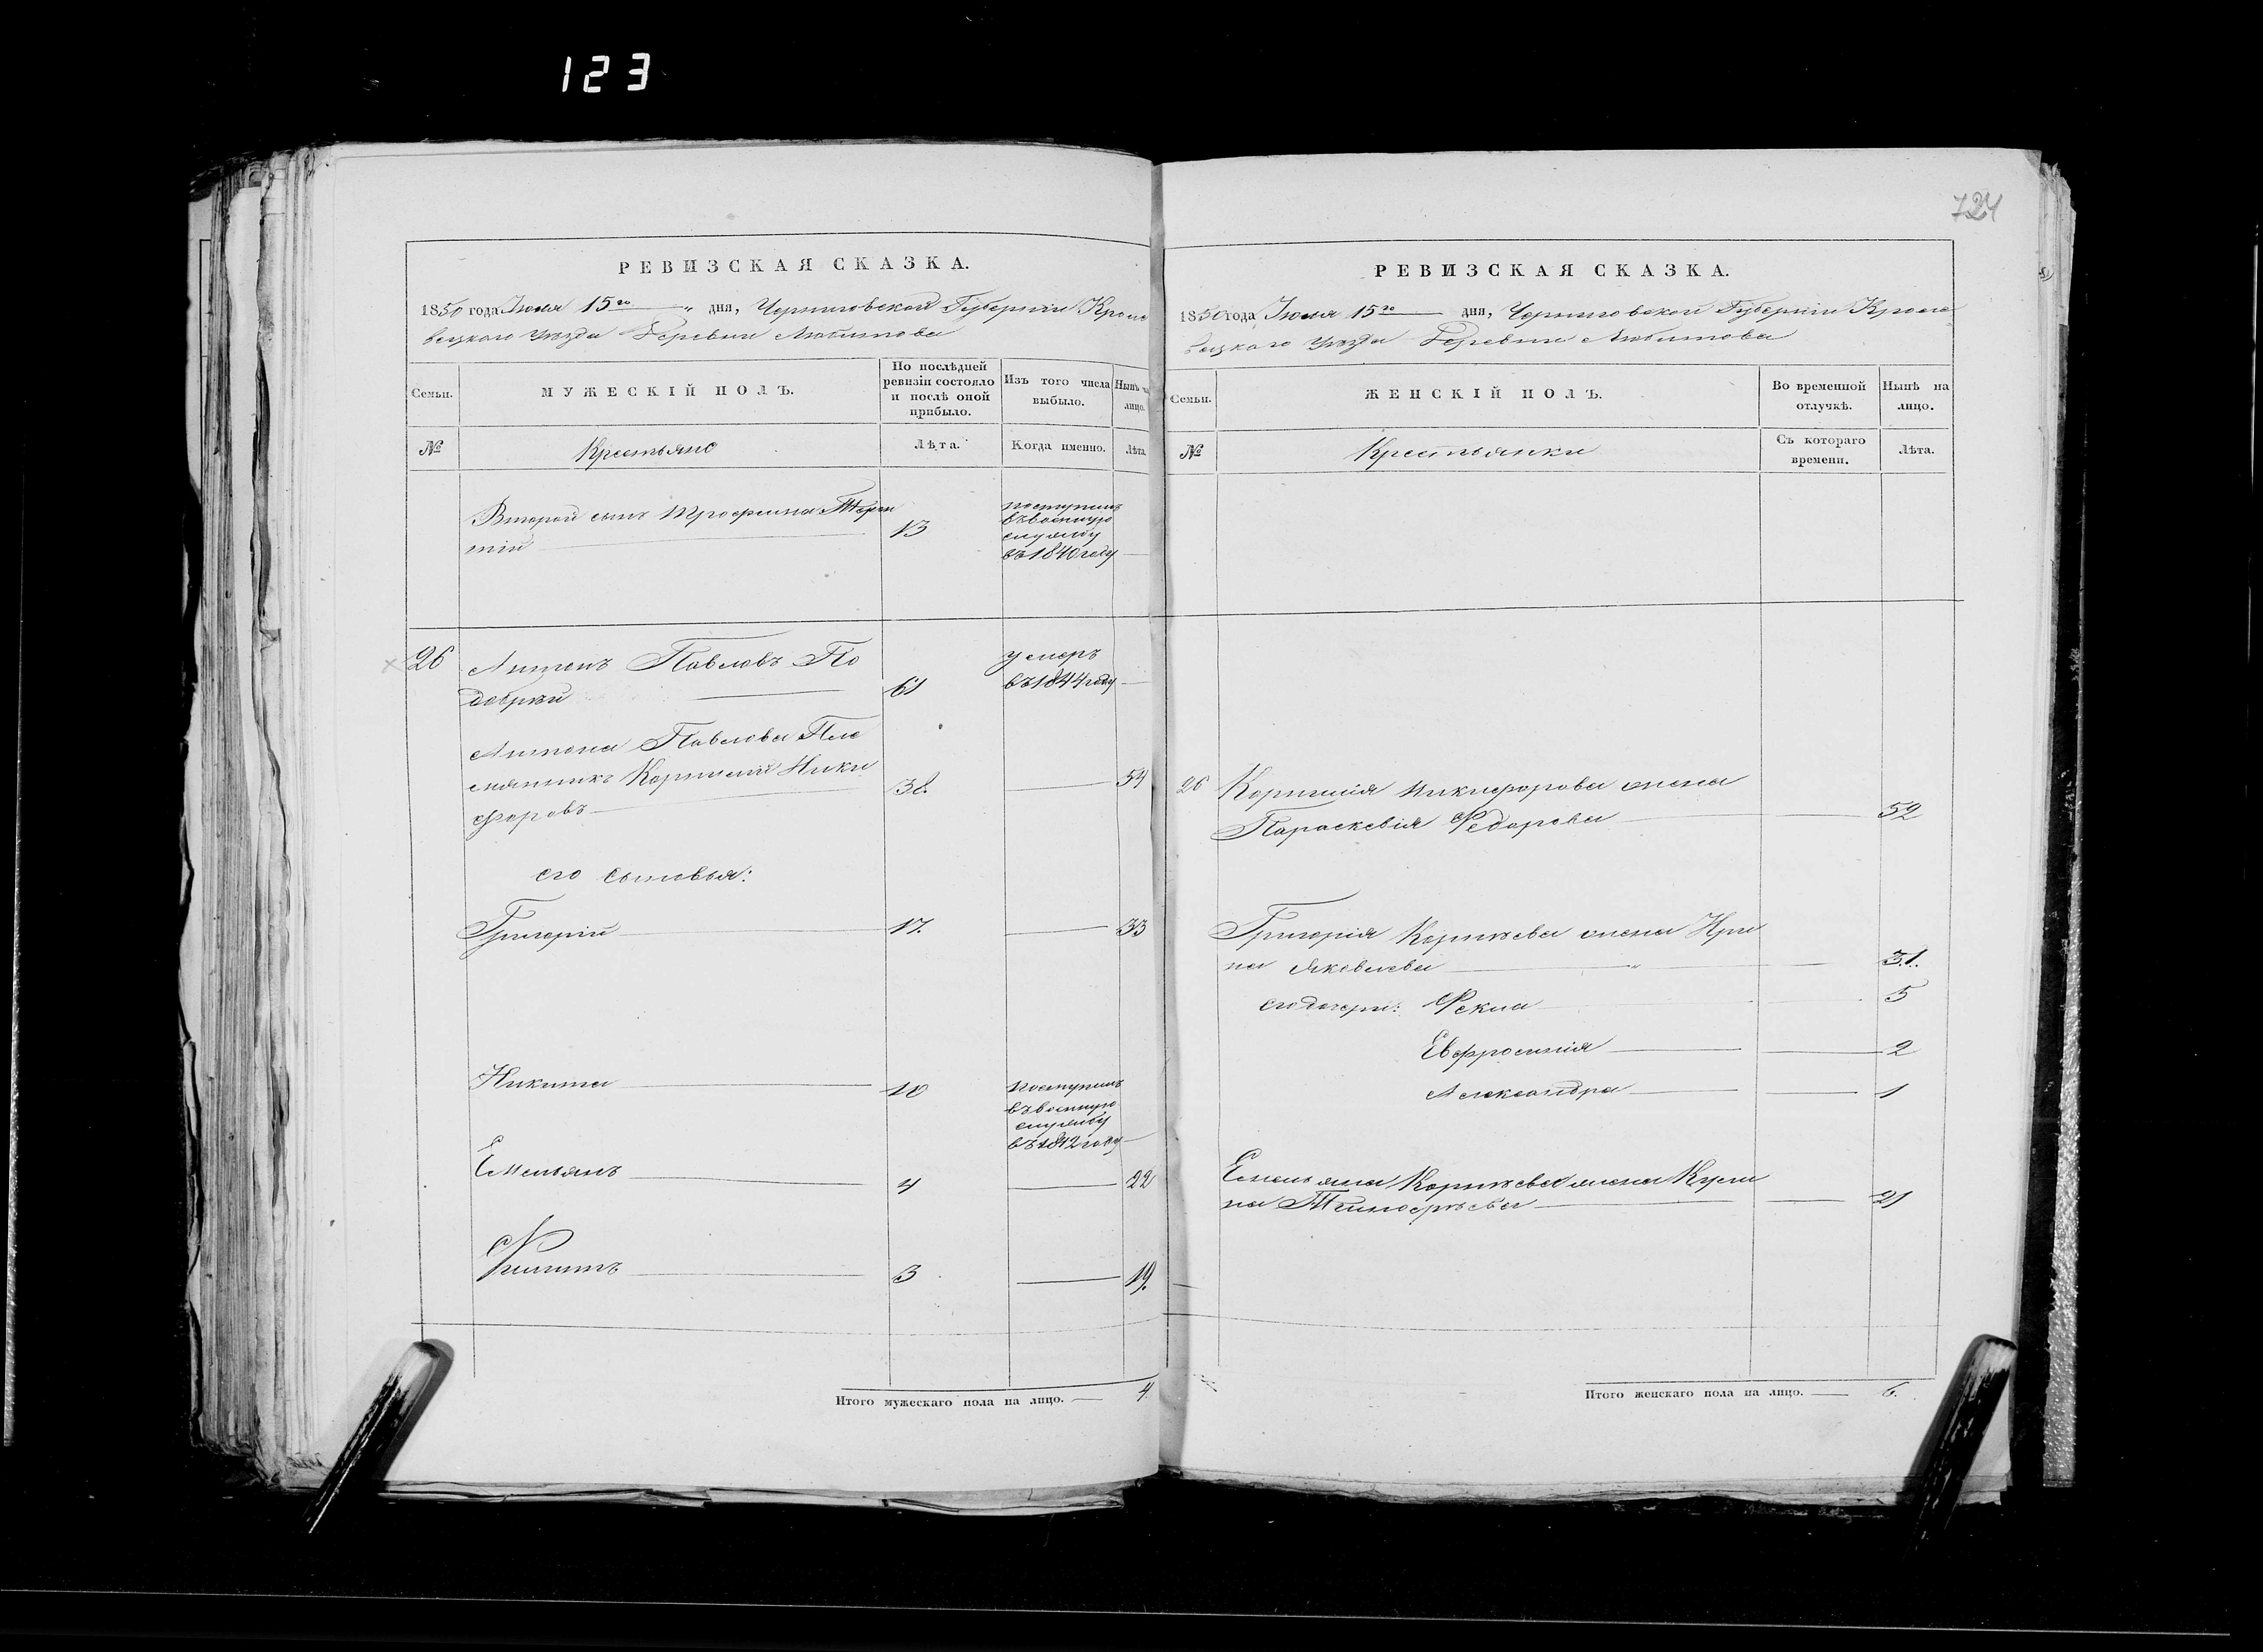 123
724
РЕВИЗСКАЯ СКАЗКА.
1850 года Іюля 15го дня, Черниговской Губерніи Кроле
вецкаго Уѣзда Деревни Любитова
Семьи.
МУЖЕСКІЙ ПОЛЪ.
По послѣдней
ревизіи состояло
и послѣ оной
прибыло.
Изъ того числа
выбыло.
Нынѣ на
лицо.
№
Крестьяне
Лѣта.
Когда именно.
Лѣта.
Второй сынъ Трофима Терен
тій
13
поступилъ
въ военную
службу
въ 1840 году
26
Антонъ Павловъ По
добрій
61
умеръ
въ 1844 году
Антона Павлова Пле
мянникъ Корнилій Ники
форовъ
38.
54
его сыновья:
Григорій
17.
33
Никита
10
поступилъ
въ военную
службу
въ 1842 году
Емельянъ
4
22
Филипъ
3
19.
Итого мужескаго пола на лицо. 4.
РЕВИЗСКАЯ СКАЗКА.
1850 года Іюля 15го дня, Черниговской Губерніи Кроле
вецкаго Уѣзда Деревни Любитова
Семьи.
ЖЕНСКІЙ ПОЛЪ.
Во временной
отлучкѣ.
Нынѣ на
лицо.
№
Крестьянки
Съ котораго
времени.
Лѣта.
26
Корнилія Никифорова жена
Параскевія Федорова
52
Григорія Корнѣева жена Ири
на Яковлева
31.
его дочери: Фекла
5
Евфросинія
2
Александра
1
Емельяна Корнѣева жена
на Тимофѣева
21
Итого женскаго пола на лицо. 6.